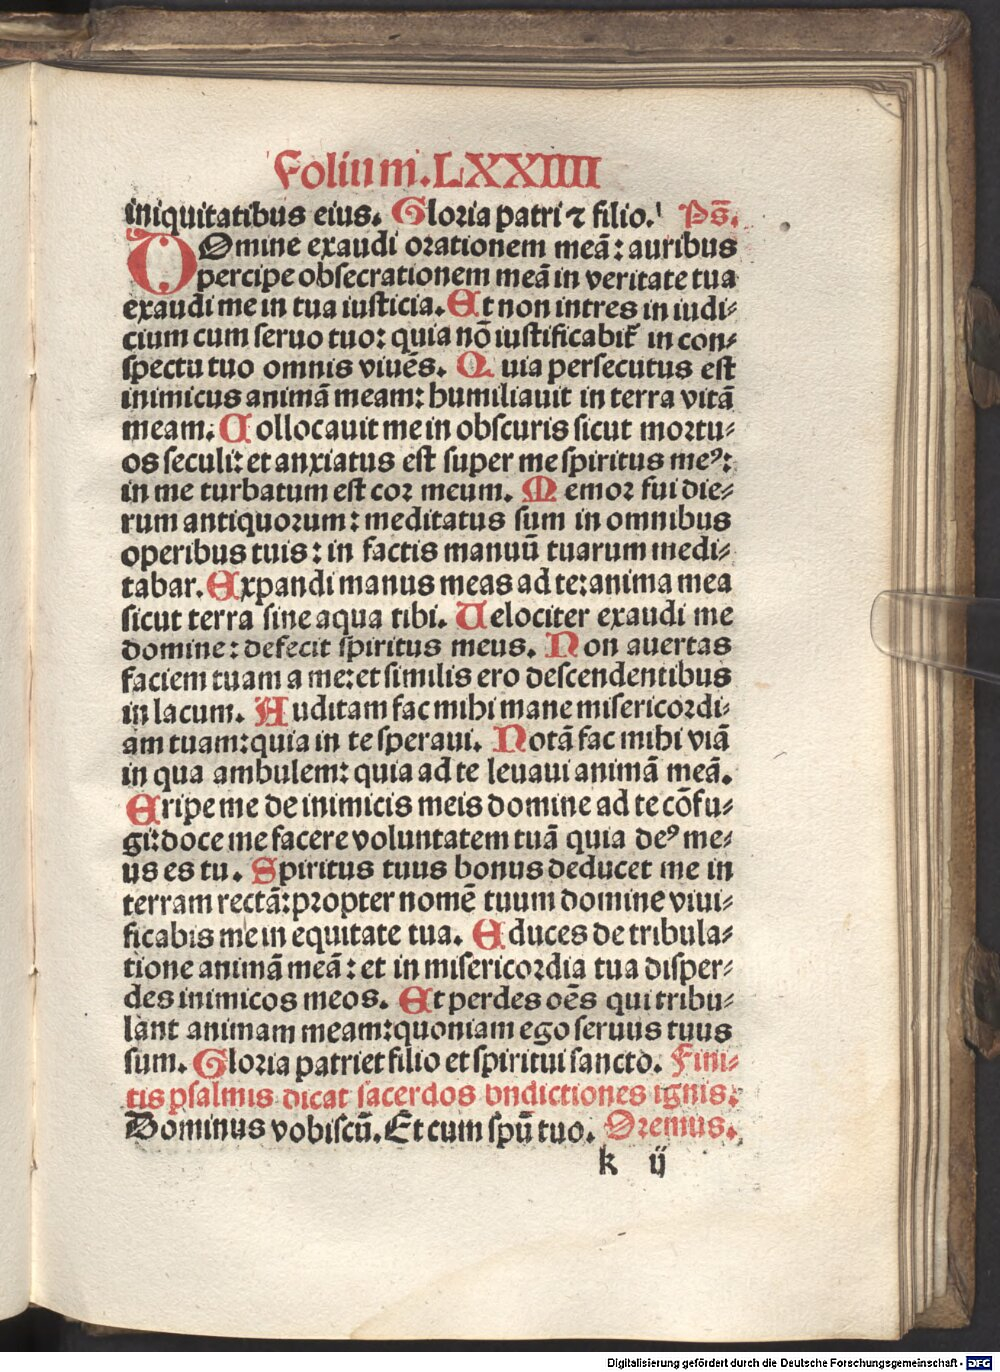 Folium.LXXIIII
iniquitatibus eius. Gloria patri ⁊ filio. Ps̄.
DOmine exaudi orationem meã: auribus
percipe obsecrationem meã in veritate tua
exaudi me in tua iusticia. Et non intres in iudi⸗
cium cum seruo tuo: quia nõ iustificabit̃ in con⸗
spectu tuo omnis viuẽs. Quia persecutus est
inimicus animã meam: humiliauit in terra vitã
meam. Collocauit me in obscuris sicut mortu⸗
os seculi: et anxiatus est super me spiritus meꝰ:
in me turbatum est cor meum. Memor fui die⸗
rum antiquorum: meditatus sum in omnibus
operibus tuis: in factis manuũ tuarum medi⸗
tabar. Expandi manus meas ad te: anima mea
sicut terra sine aqua tibi. Uelociter exaudi me
domine: defecit spiritus meus. Non auertas
faciem tuam a me: et similis ero descendentibus
in lacum. Auditam fac mihi mane misericordi⸗
am tuam: quia in te speraui. Notã fac mihi viã
in qua ambulem: quia ad te leuaui animã meã.
Eripe me de inimicis meis domine ad te cõfu⸗
gi: doce me facere voluntatem tuã quia deꝰ me⸗
us es tu. Spiritus tuus bonus deducet me in
terram rectã: propter nomẽ tuum domine viui⸗
ficabis me in equitate tua. Educes de tribula⸗
tione animã meã: et in misericordia tua disper⸗
des inimicos meos. Et perdes oẽs qui tribu⸗
lant animam meam: quoniam ego seruus tuus
sum. Gloria patri et filio et spiritui sancto. Fini⸗
tis psalmis dicat sacerdos bndictiones ignis.
Dominus vobiscũ. Et cum spũ tuo. Oremus.
k ij
Digitalisierung gefördert durch die Deutsche Forschungsgemeinschaft - DFG